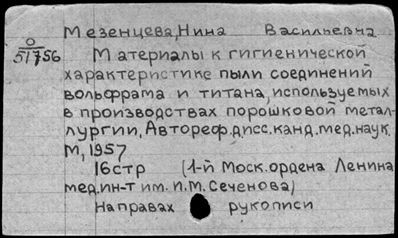 Мезенцева, Нина Васильевна
О
51756
Материалы к гигиенической
характеристике пыли соединений
вольфрама и титана, используемых
в производствах порошковой метал-
лургии, Автореф.дисс.канд.мед.наук.
М, 1957
16стр (1-й Моск.ордена Ленина
мед.ин-т им. И.М. Сеченова)
На правах рукописи